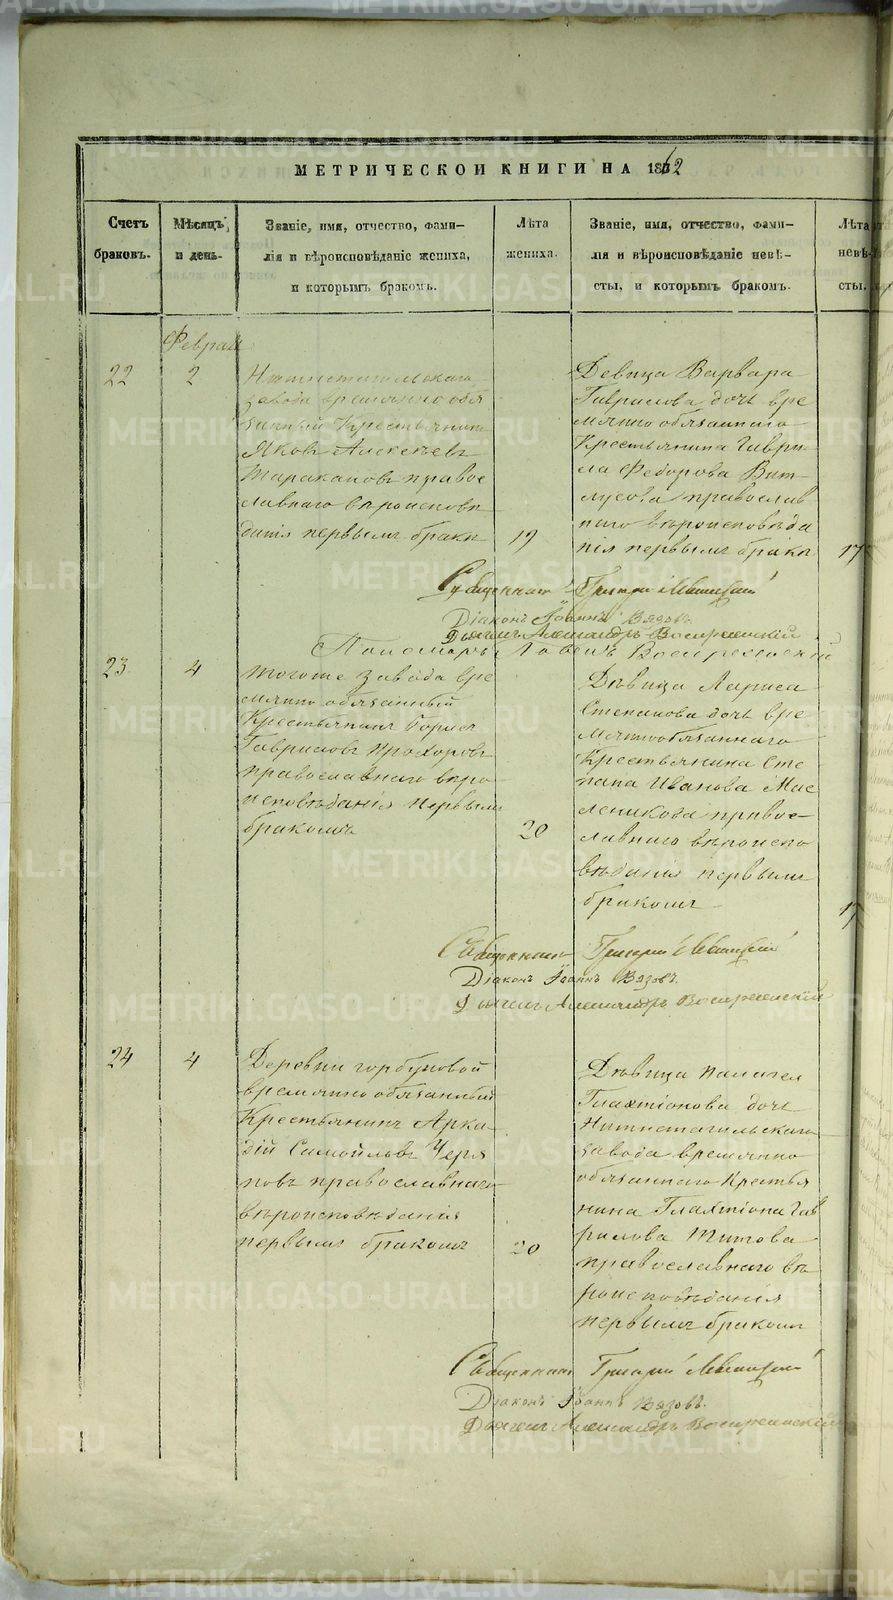 МЕТРИЧЕСКОИ КНИГИ НА 1862
Счетъ браковъ.
Мѣсяцъ, и день.
Званіе, имя, отчество, фами-
лія и вѣроисповѣданіе жениха,
и которымъ бракомъ.
Лѣта жениха.
Званіе, имя, отчество, фами-
лія и вѣроисповѣданіе невѣ-
сты, и которымъ бракомъ.
Лѣта невѣ-
сты.
Феврал
22
2
Нижнетагильскаго
завода временно обя
занный Крестьянинъ
Яковъ Алексѣевъ
Таракановъ право
славнаго вѣроисповѣ
данія первымъ брако
19
Девица Варвара
Гаврилова дочь вре
мянно обязаннаго
Крестьянина Гаври
ла Федорова
православ
наго вѣроисповѣда
нія первымъ брако
17
Священникъ Григорій Левицкій
Діаконъ Іоаннъ Вязовъ.
Дьячекъ Александръ Воскресенскій
Пономарь Павелъ Воскресенскій
23
4
тогоже завода вре
мянно обязанный
Крестьянинъ Борисъ
Гавриловъ Прохоровъ
православнаго вѣро
исповѣданія первымъ
бракомъ
20
Дѣвица Лариса
Степанова дочь вре
мяннообязаннаго
Крестьянина Сте
пана Иванова Мас
леникова право-
славнаго вѣроиспо
вѣданія первымъ
бракомъ
17
Священникъ Григорій Левицкій
Діаконъ Іоаннъ Вязовъ.
Дьячекъ Александръ Воскресенскій
24
4
Деревни горбуновой
времянно обязанный
Крестьянинъ Арка
дій Самойловъ Черя
новъ православнаго
вѣроисповѣданія
первымъ бракомъ
20
Дѣвица Палагея
Галахтіонова дочь
Нижнетагильскаго
завода времянно
обязаннаго Крестья
нина Галахтіона Гав
рилова Титова
православнаго вѣ
роисповѣданія
первымъ бракомъ
Священникъ Григорій Левицкій
Діаконъ Іоаннъ Вязовъ.
Дьячекъ Александръ Воскресенскій
METRIKI.GASO-URAL.RU